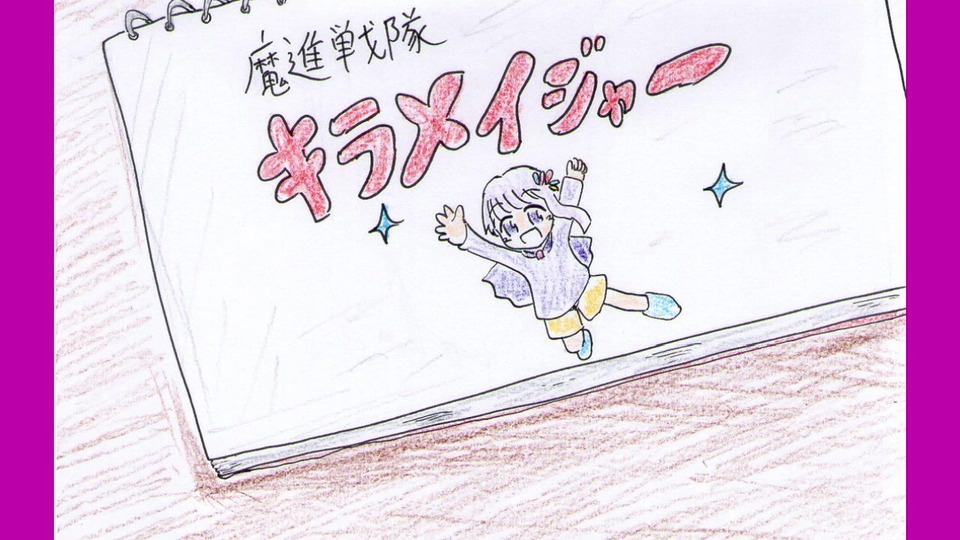 魔進戦隊
キラメイジャー